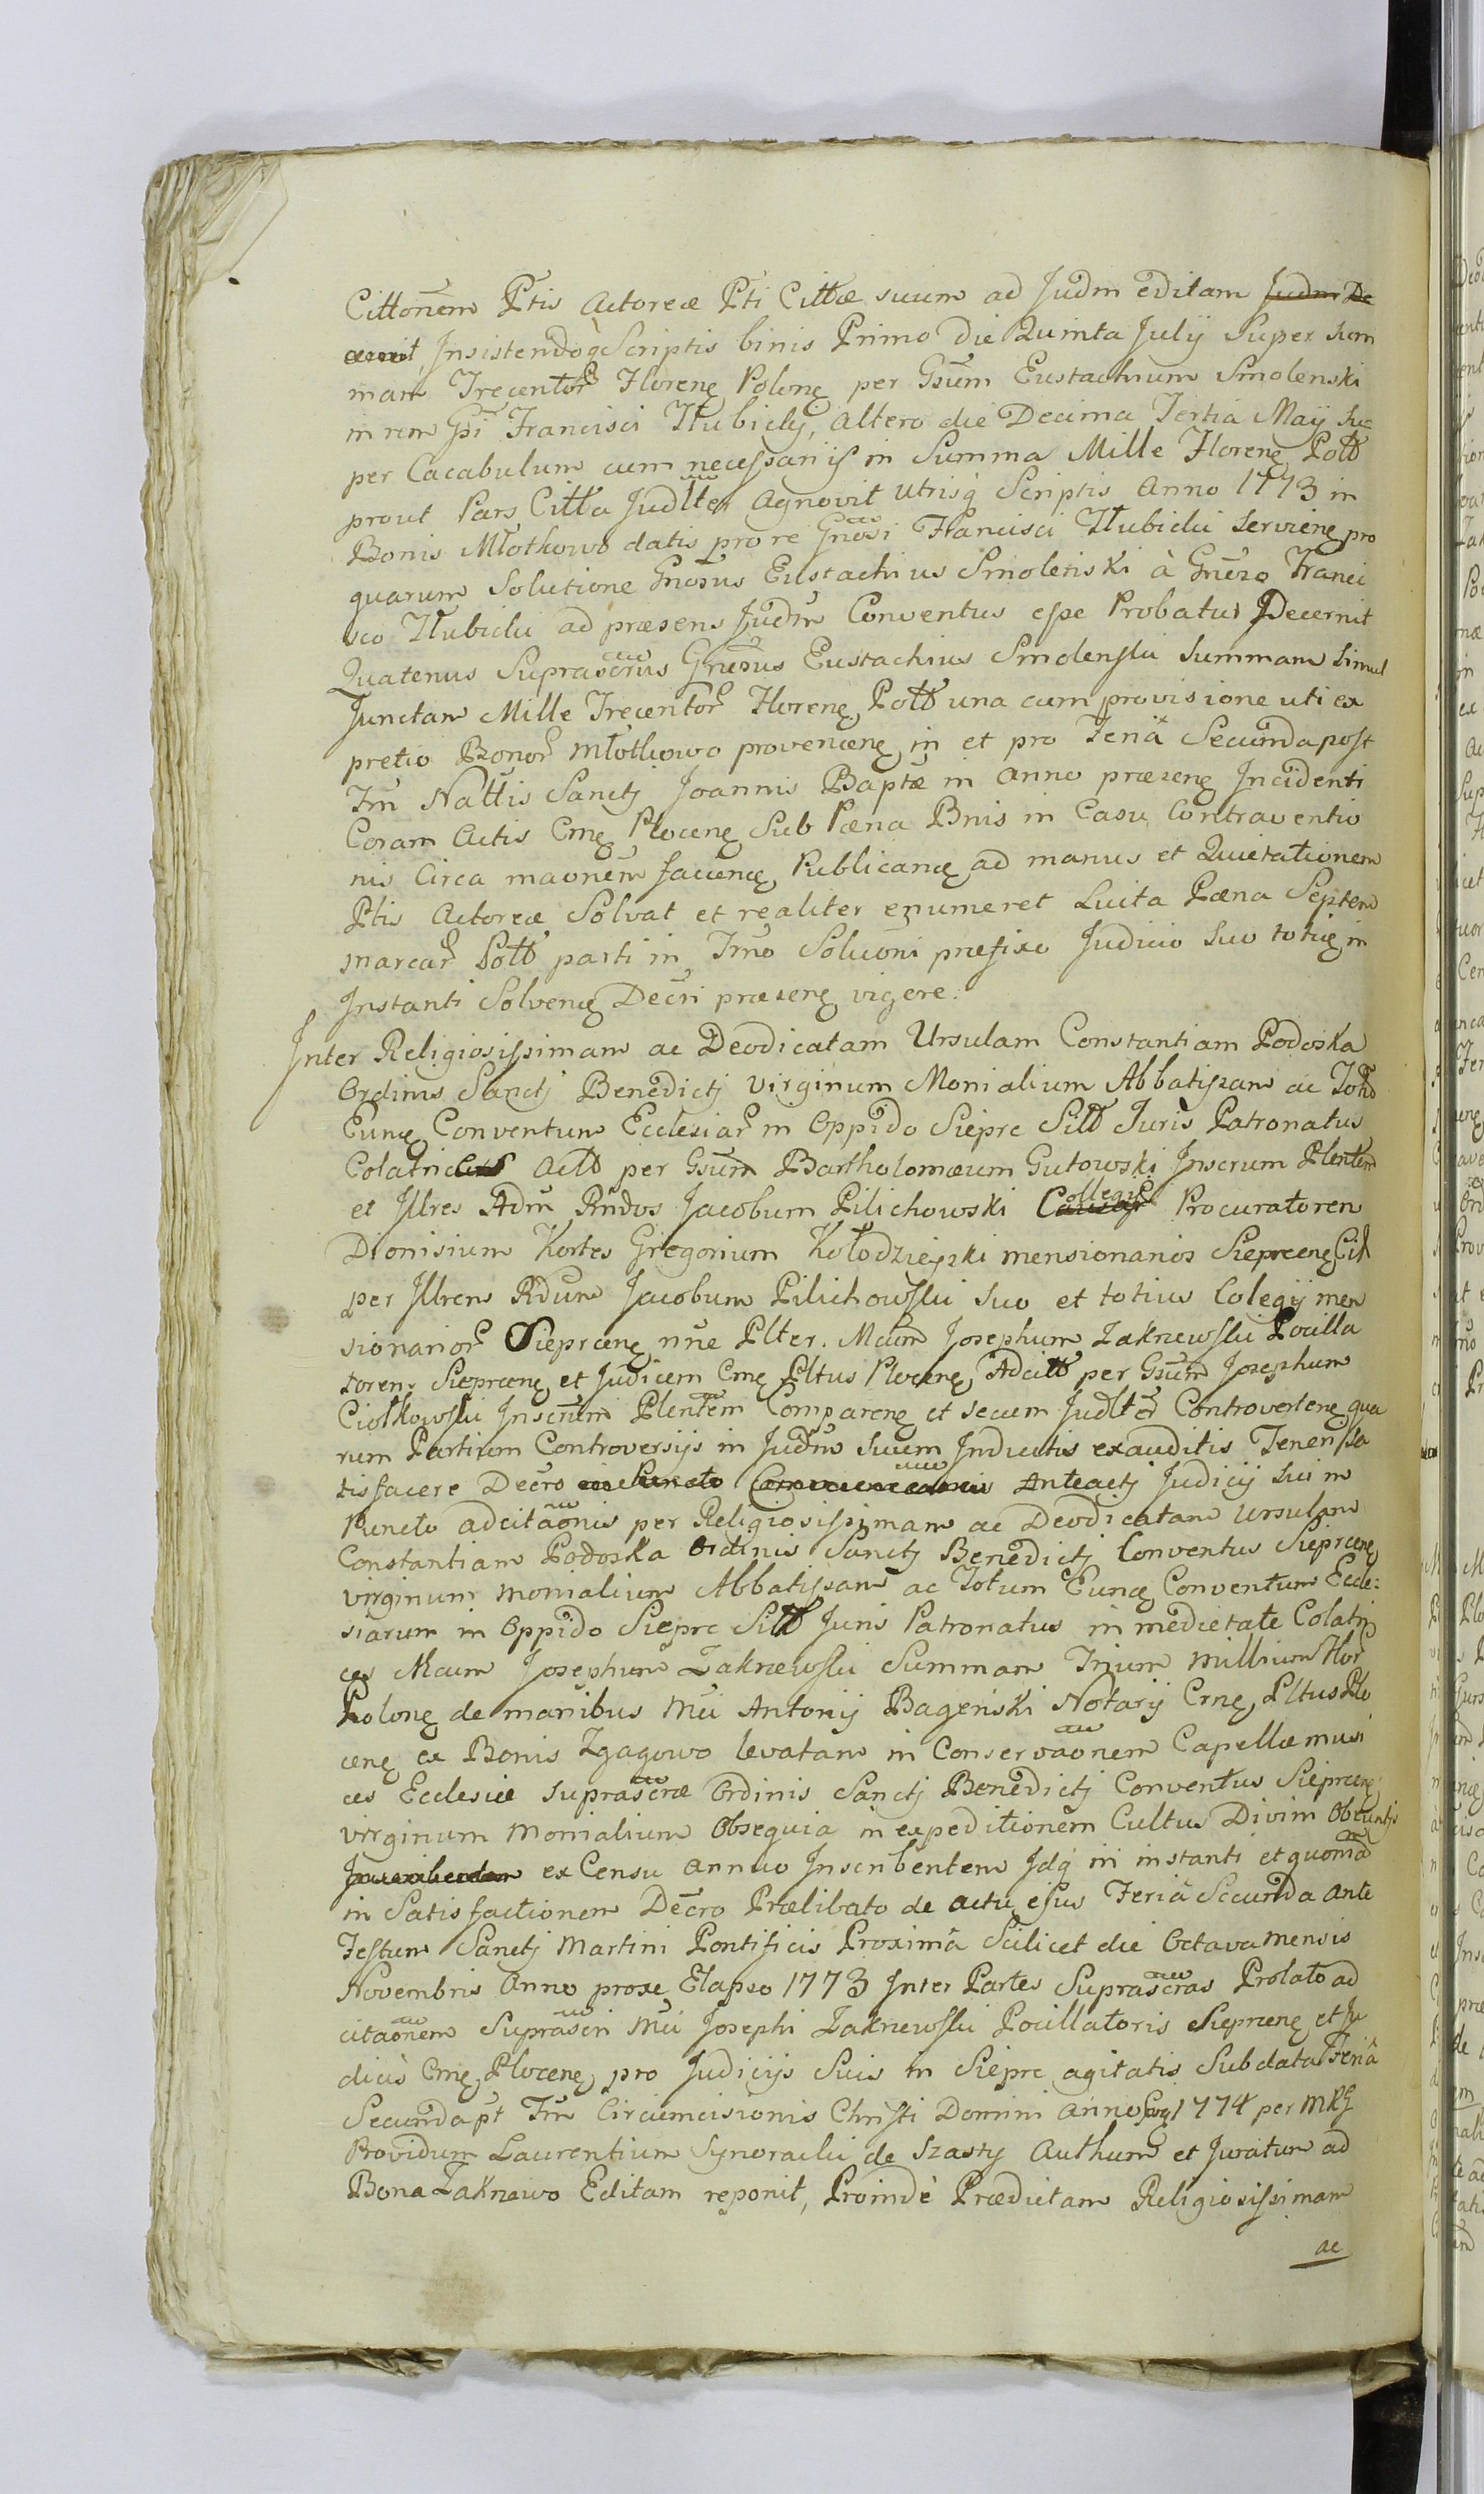 Cittonem Ptis Actoreæ Pti Cittæ suum ad Judm editam Judm De
Insistendoq Scriptis binis Primo Die Quinta July Super sum
mam Trecentor Floreng Polong per Gsum Eustachium Smolenski
in rem Gsi Francisci Hubicky, altero die Decima Tertia Maÿ Su=
per Cacabulum cum necessariis in Summa Mille Floreng Poll
prout Pars Citta Judlter Agnovit utrisq Scriptis Anno 1773 in
Bonis Młotkowo datis pro re Gnosi Francisci Hubicki Serviene pro
quarum Solutione Gnosus Eustachius Smolenski à Gneso Franci
sco Hubicki ad præsens Judm Conventus esse Probatus Decernit
Quatenus Suprascrius Gnesus Eustachius Smolenski Summam Simul
Junctam Mille Trecentor Floreng Poll una cum provisione uti ex
pretio Bonor Młotkowo proveniene in et pro Feriâ Secunda post
Fm Nattis Sancti Joannis Baptæ in anno præsene Incidenti
Coram Actis Cme Plocene Sub Pæna Bnis in Casu Contraventio
nis Circa maonem faciene Publicane ad manus et Quietationem
Ptis Actoreæ Solvat et realiter enumeret Luita Pæna Septem
marcar Poll parti in Tmo Soluoni prefixo Judicio Suo totie in
Instanti Solvene Decri præsene vigore.
Inter Religiosissimam ac Deodicatam Ursulam Constantiam Podoska
Ordinis Sancti Benedicti Virginum Monialium Abbatissam ac Totu
Eunq Conventum Ecclesiar in Oppido Siepre Sitt Juris Patronatus
Colatrices Actt per Gsum Bartholomæum Gutowski Inscrum Plentem
et Illres Adm Rndos Jacobum Pilichowski Causar Collegij Procuratorem
Dionisium Kortes Gregorium Kołodzieyski mensionarios Sieprcene Cit
per Illrem Rdum Jacobum Pilichowski Suo et totius Colegij men
sionarior Sieprcene nne Plter. Mcum Josephum Zakrzewski Pocilla
torem Sieprcene et Judicem Cme Pltus Plocene Adcitt per Gsum Josephum
Ciołkowski Inscrum Plentem Comparene et secum Judlter Controvertene qua
rum Partium Controversijs in Judm Suum Inductis exauditis Tenen Sa
tisfacere Decro in Puncto Anteacti Judicij Sui in
Puncto adcitaonis per Religiosissimam ac Deodicatam Ursulam
Constantiam Podoska Ordinis Sancti Benedicti Conventus Sieprcene
virginum monialium Abbatissam ac Totum Eunq Conventum Eccle=
siarum in Oppido Siepre Sitt Juris Patronatus in medietate Colatri
ces Mcum Josephum Zakrzewski Summam Trium millium Flor
Polong de manibus Mci Antonij Bagenski Notarij Crne Pltus Plo
cene ex Bonis Zgagowo levatam in Conservaonem Capellæ musi
ces Ecclesiæ suprascræ Ordinis Sancti Benedicti Conventus Sieprcene
virginum Monialium Obsequia in expeditionem Cultus Divini Obeuntis
Inscribentem ex Censu annuo Inscribentem Idq in instanti et quoniã
in Satisfactionem Decro Prælibato de actu ejus Feriâ Secunda ante
Festum Sancti Martini Pontificis Proximâ Scilicet die Octava mensis
Novembris Anno proxe Elapso 1773 Inter Partes Suprascras Prolato ad
citaonem Suprascri Mci Josephi Zakrzewski Pocillatoris Sieprcene et Ju
dicis Cme Plocene pro Judicijs Suis in Siepre agitatis Sub data Feriâ
Secunda pt Fm Circumcisionis Christi Domini Anno 1774 per MRG
Providum Laurentium Synoracki de Szasty Authum et Juratum ad
Bona Zakrzewo Editam reponit, Proindè Prædictam Religiosissimam
ac